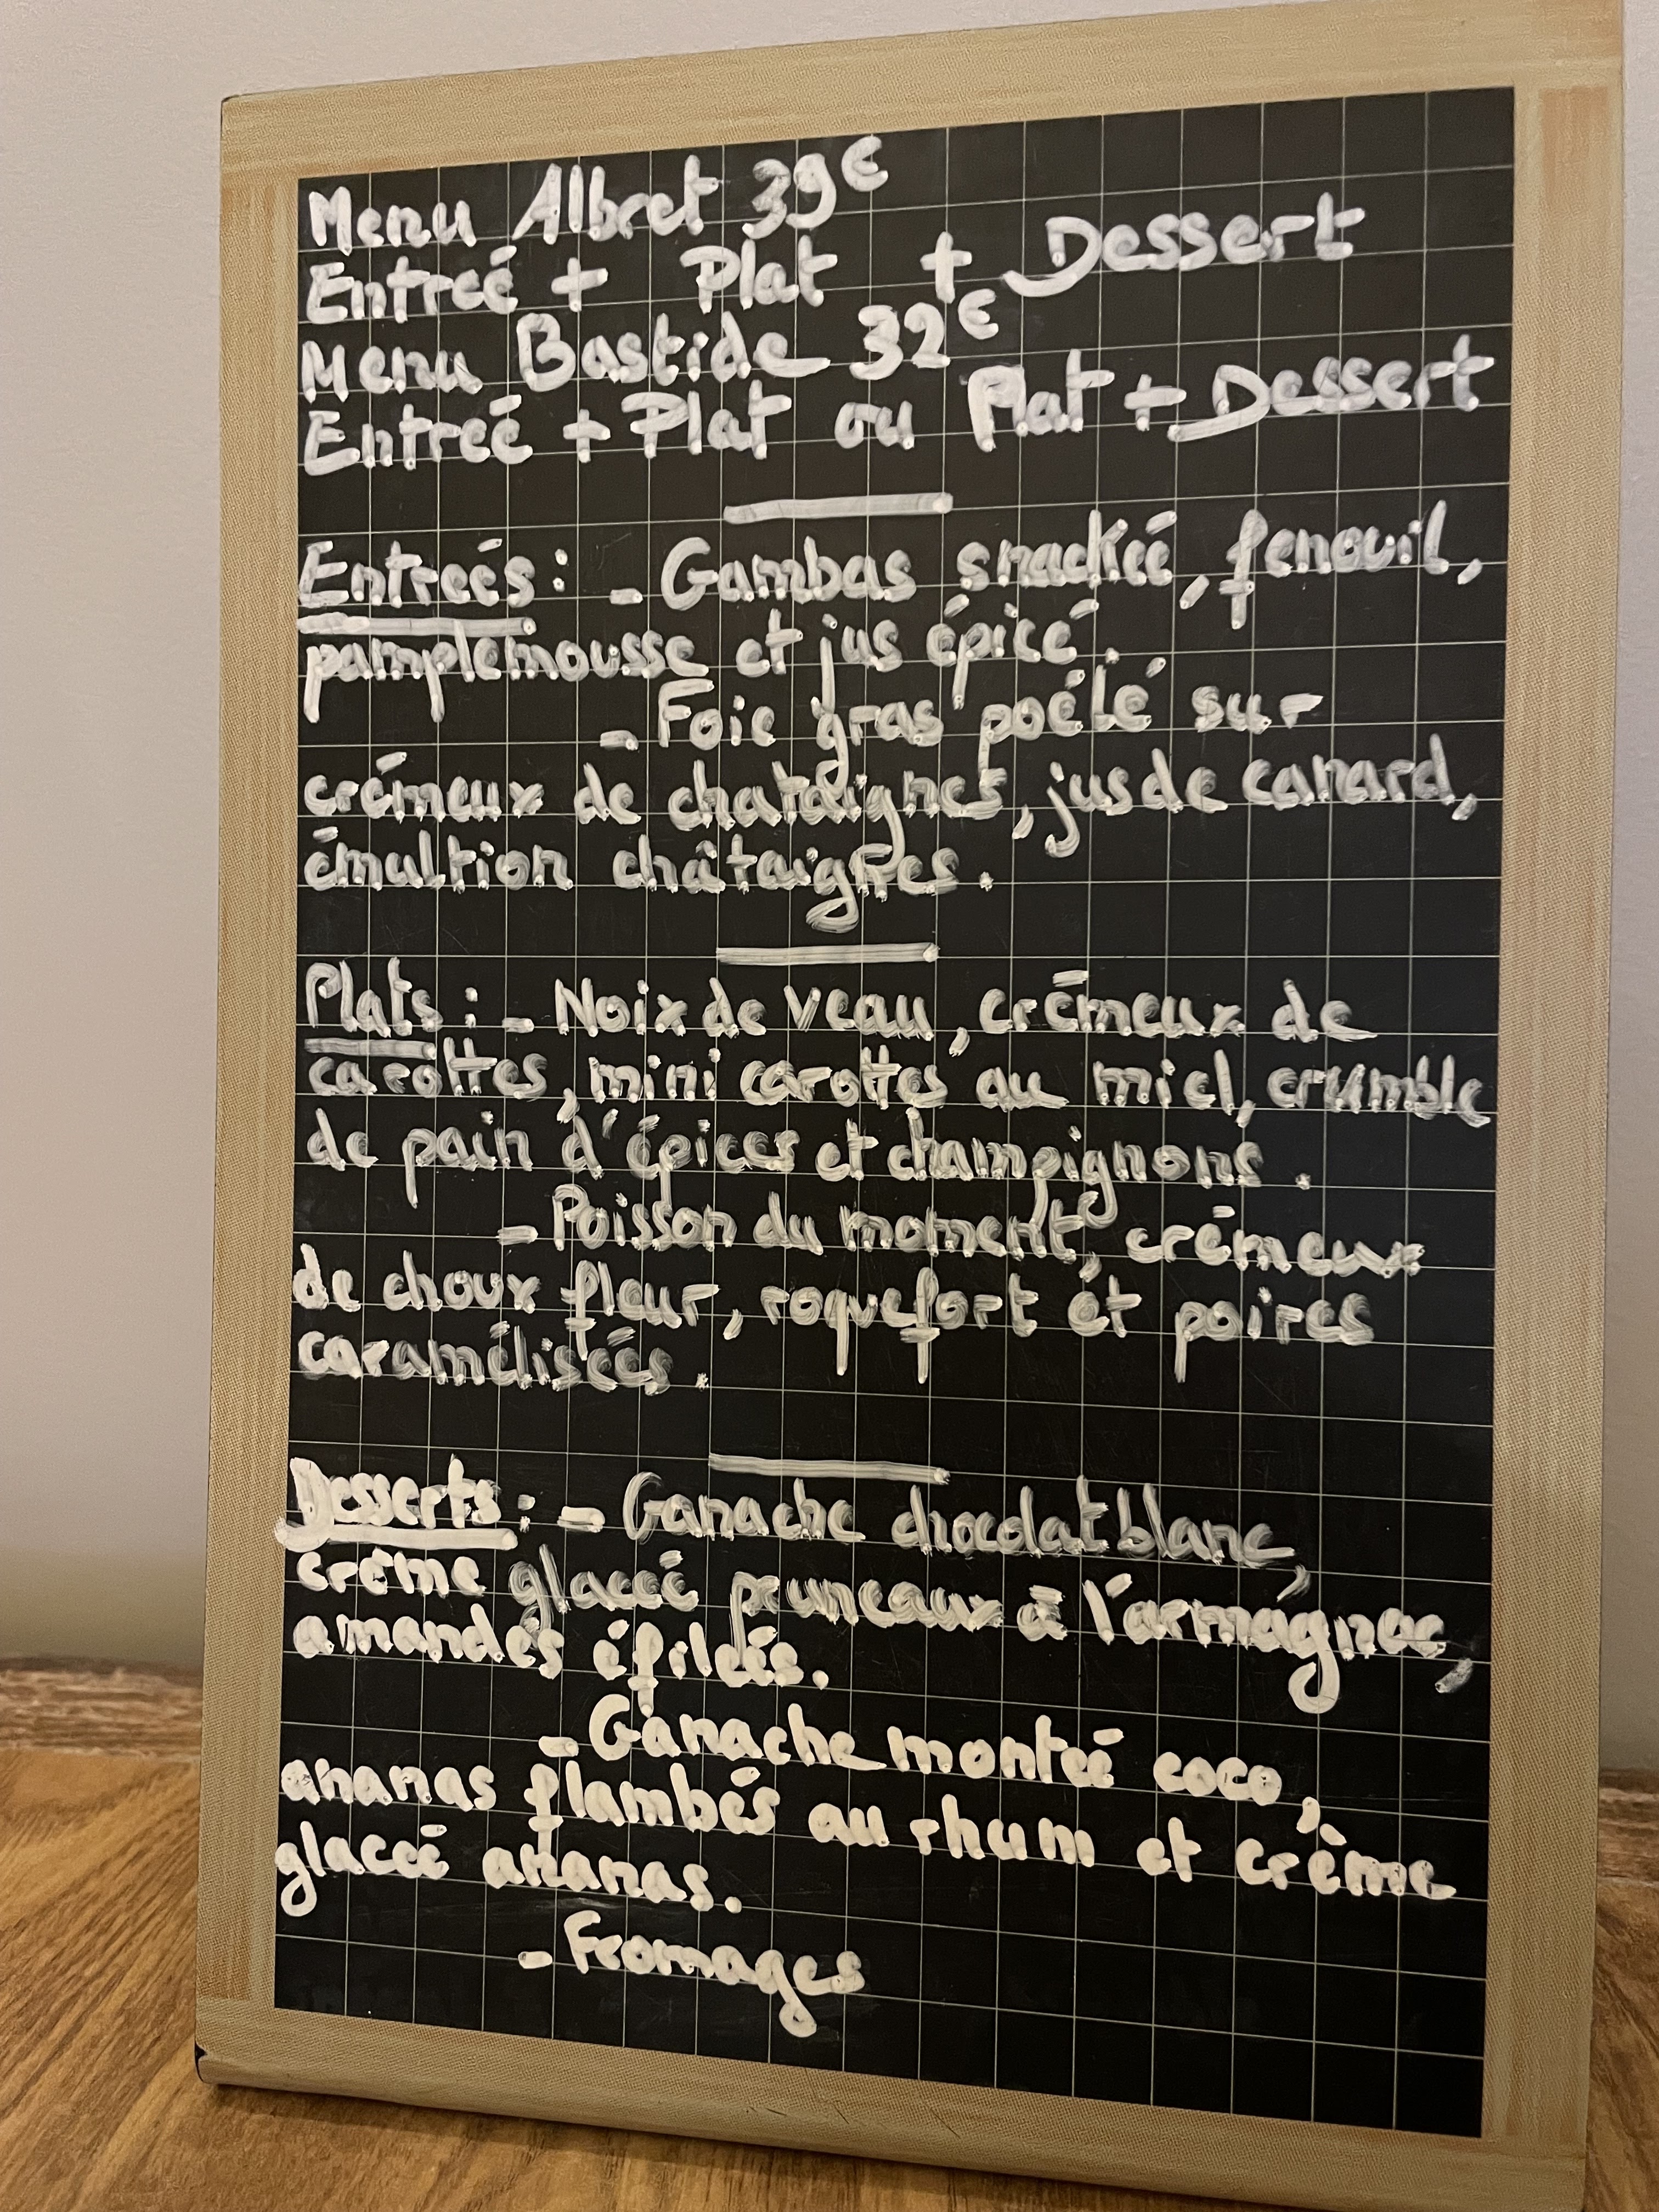 Menu Albret 39€
Entreé + Plat + Dessert
Menu Bastide 32€
Entreé + Plat ou Plat + Dessert
Entreés : - Gambas snackée, fenouil,
pamplemousse et jus épicé.
- Foie gras poélé sur
crémeux de chataignes, jus de canard,
émultion châtaignes.
Plats : - Noix de veau, crémeux de
carottes, mini carottes au miel, crumble
de pain d'épices et champignons.
- Poisson du moment, crémeux
de choux fleur, roquefort et poires
caramélisées.
Desserts : - Ganache chocolat blanc,
crème glacée pruneaux à l'armagnac,
amandes éfilées.
- Ganache montée coco,
ananas flambés au rhum et crème
glacée ananas.
- Fromages